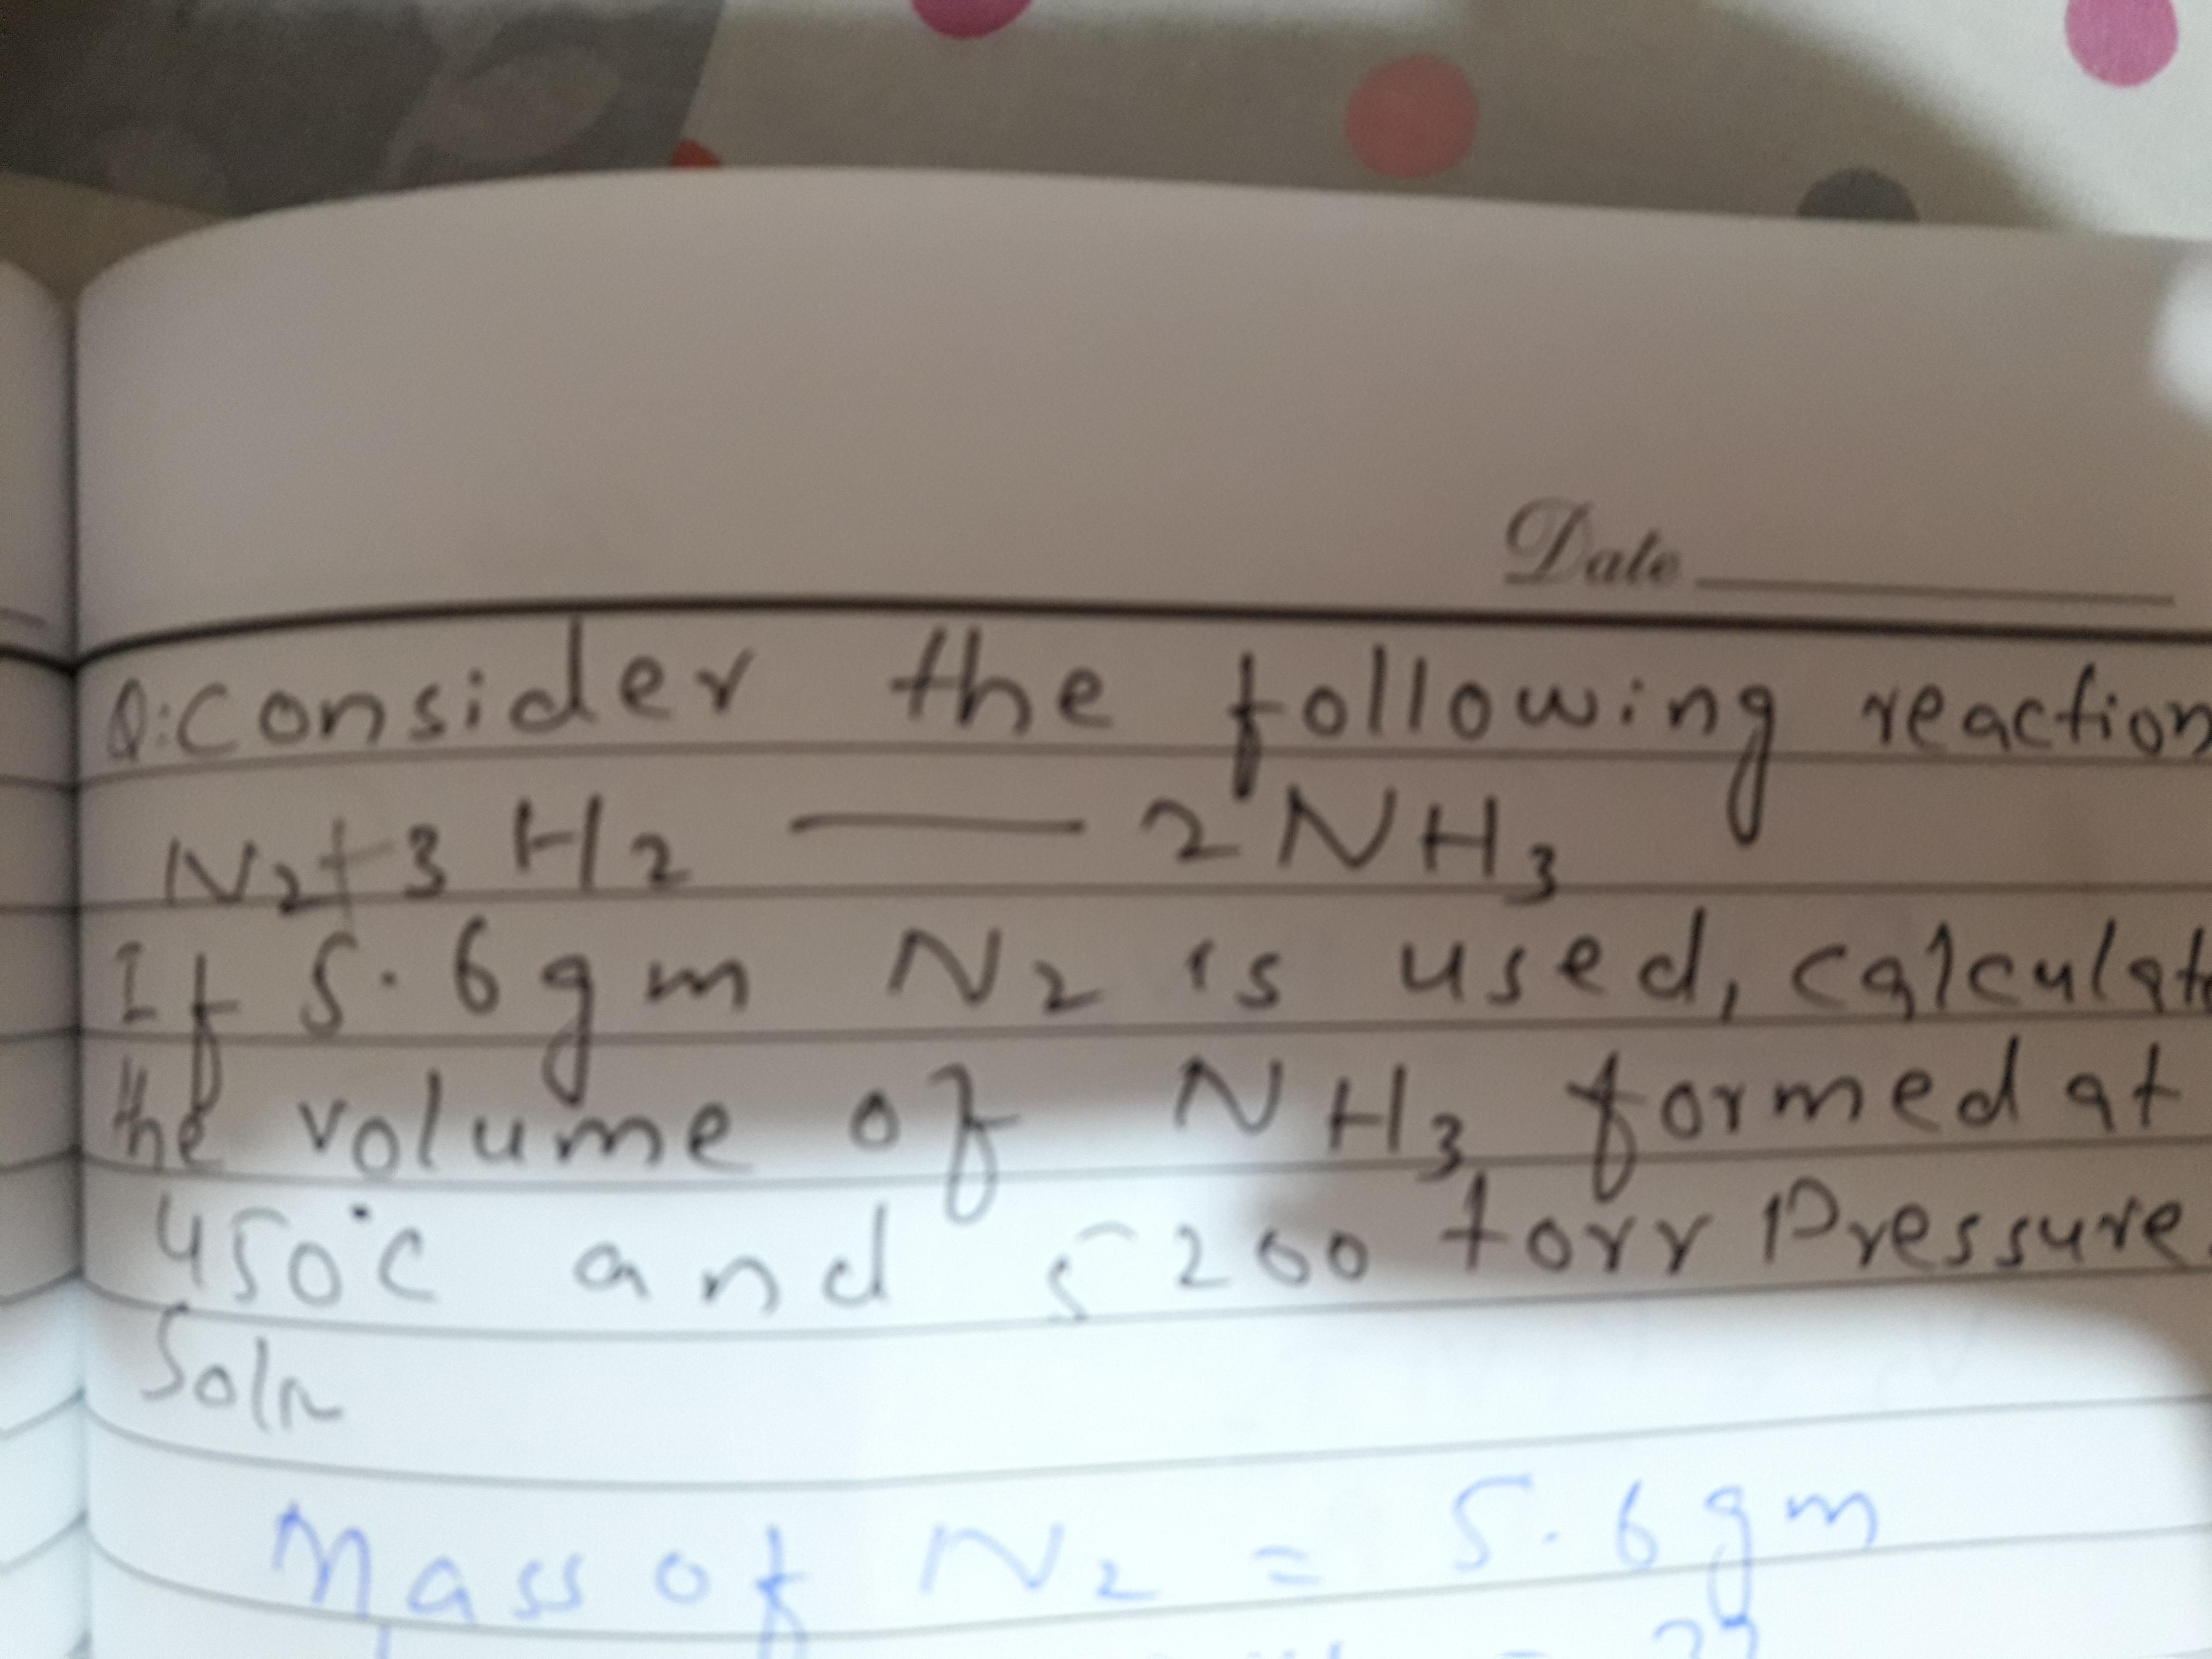 Date
Q: Consider the following reaction
N2+3H2 — 2NH3
If 5.6gm N2 is used, calculate
the volume of NH3 formed at
450°C and 5200 torr Pressure.
Soln
Mass of N2 = 5.6gm